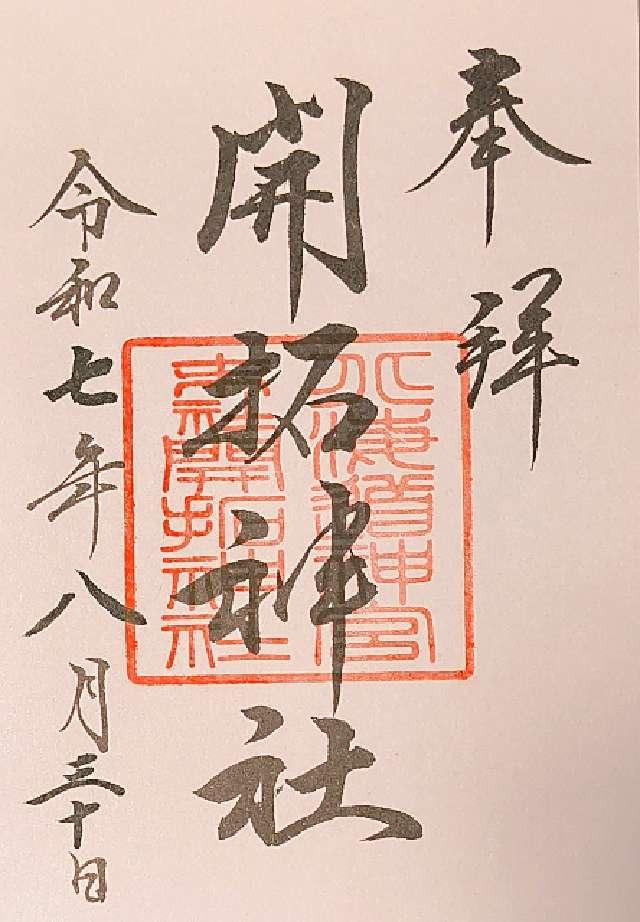 奉拝
開拓神社
令和七年八月三十日
北海道神宮
末社開拓神社